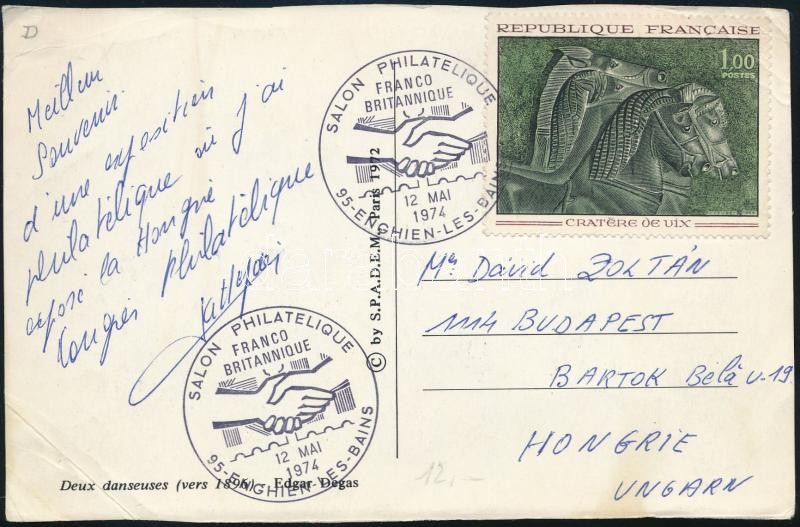 D
Meilleur
Souvenir
d'une exposition
philatélique où j'ai
exposé la Hongrie
Congrès philatélique
SALON PHILATELIQUE
FRANCO
BRITANNIQUE
12 MAI
1974
95-ENGHIEN-LES-BAINS
SALON PHILATELIQUE
FRANCO
BRITANNIQUE
12 MAI
1974
95-ENGHIEN-LES-BAINS
Deux danseuses (vers 1896) - Edgar Degas
© by S.P.A.D.E.M., Paris 1972
REPUBLIQUE FRANÇAISE
1,00
POSTES
CRATÈRE DE VIX
Mr David ZOLTÁN
1114 BUDAPEST
BARTOK Bélà u-19.
HONGRIE
UNGARN
12,-